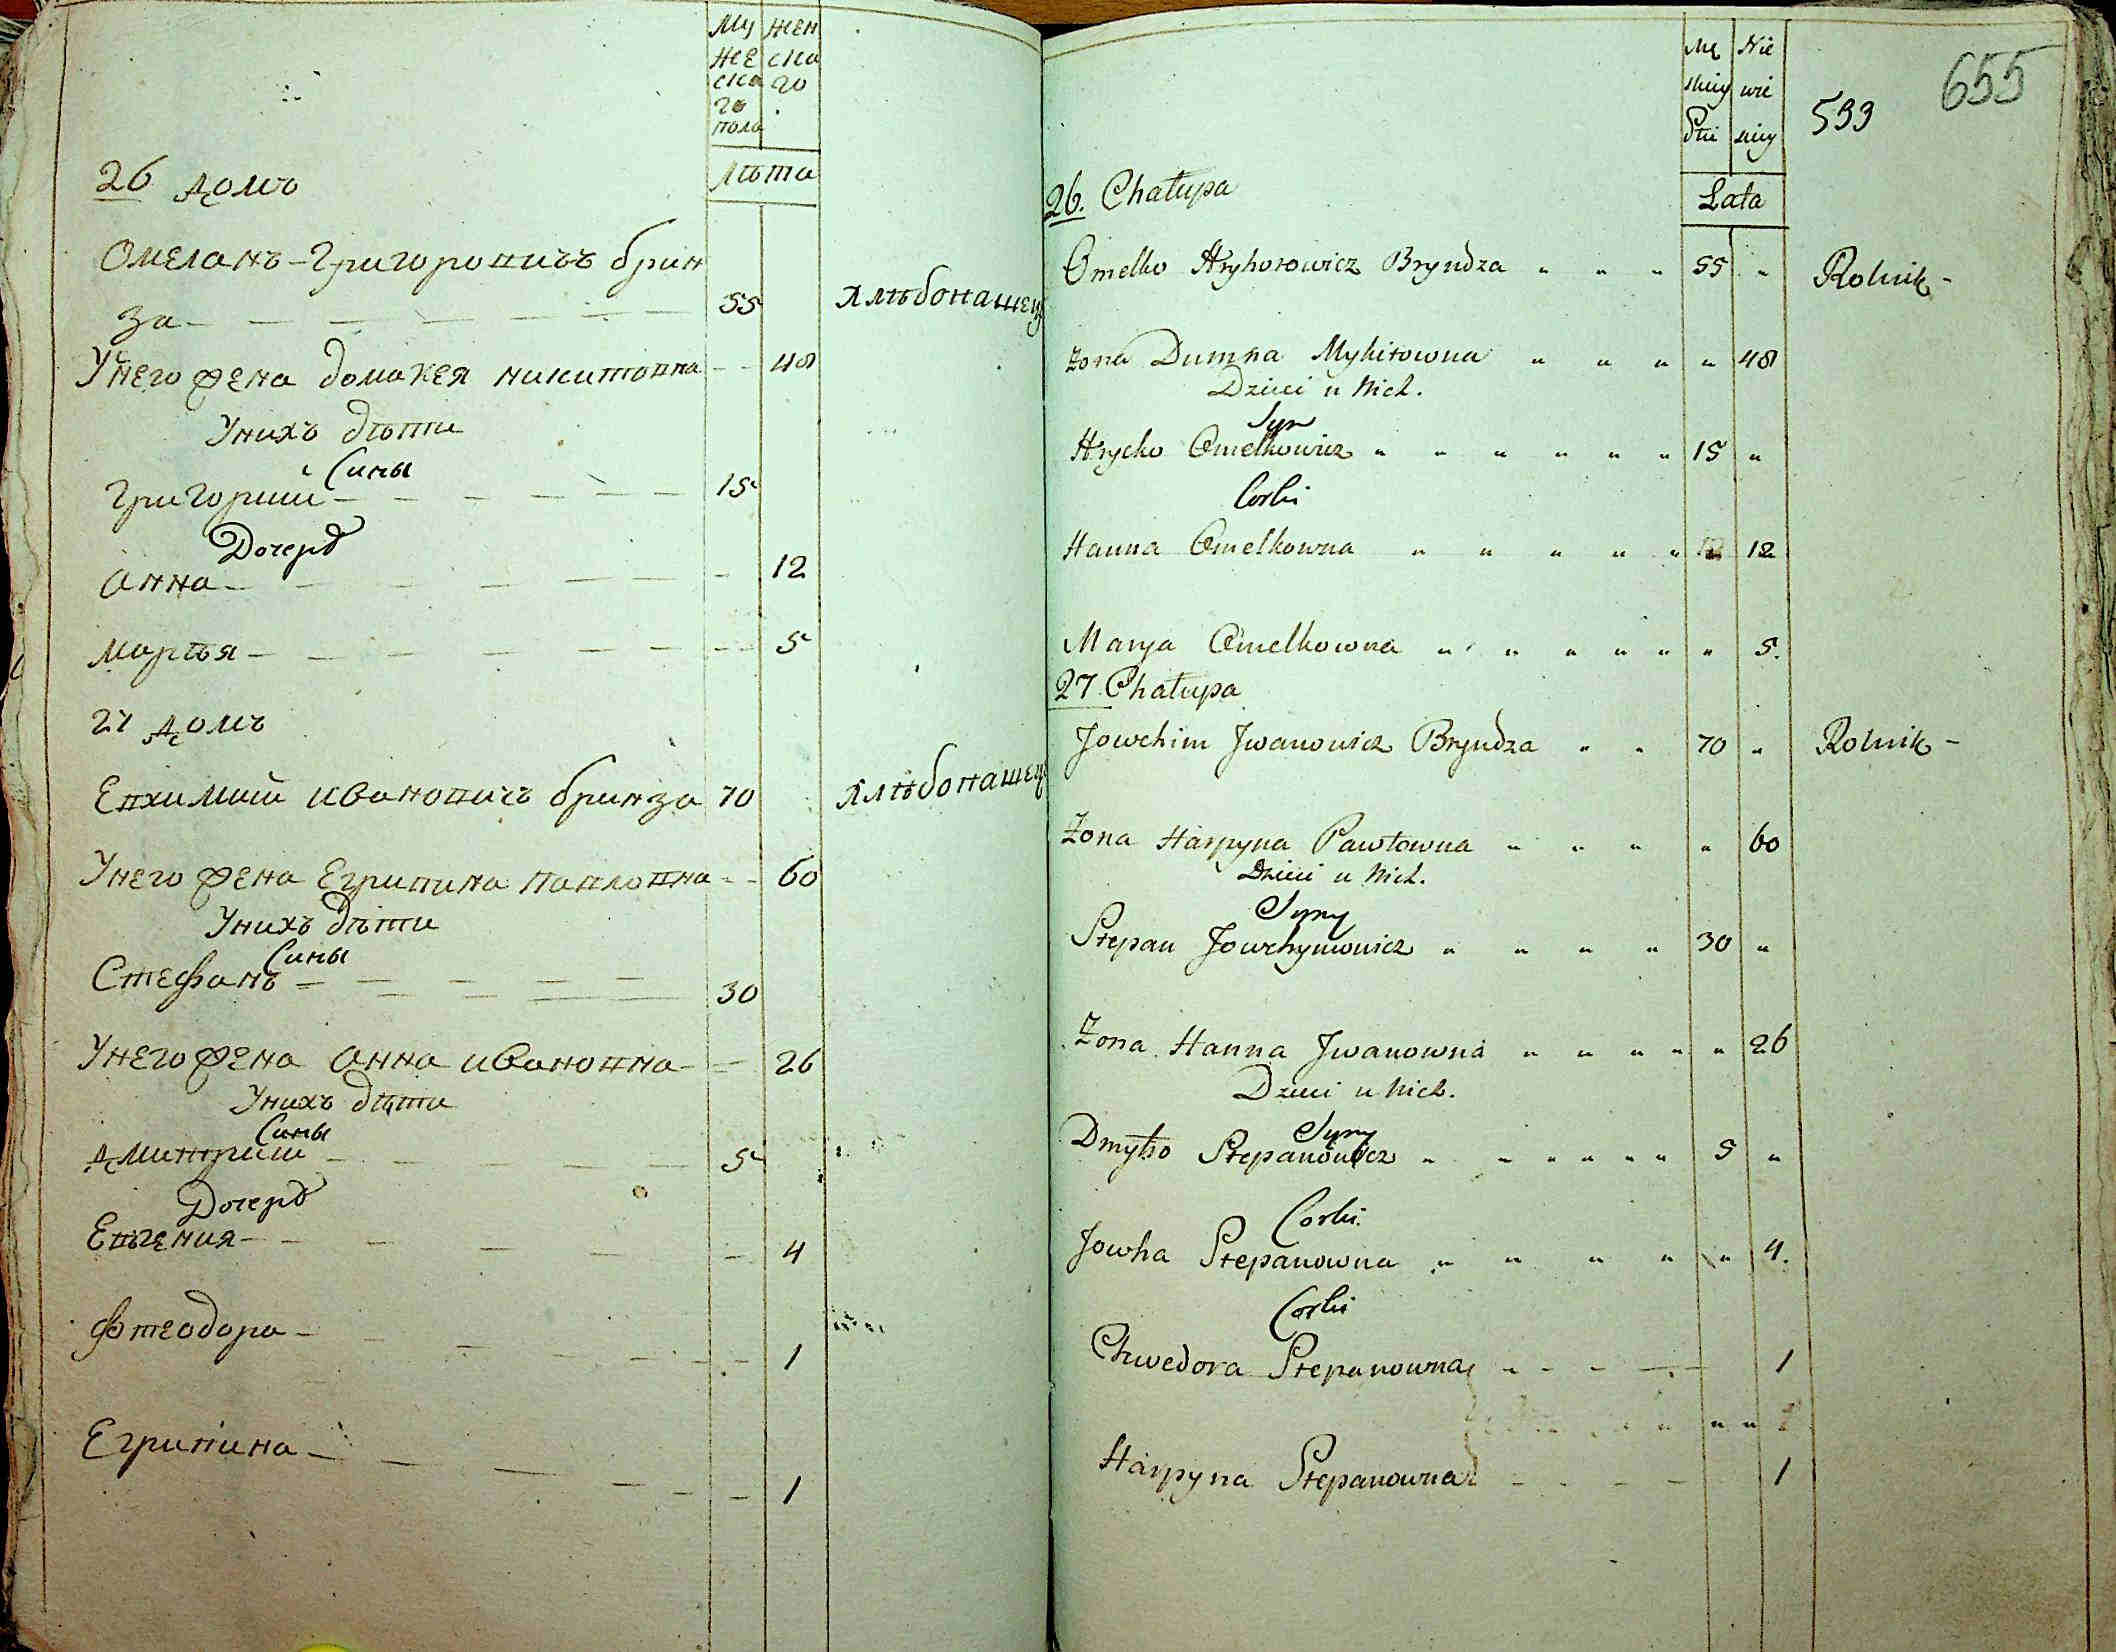 Му жен
же ска
ска го
го
пола
лѣта
26 домъ
Омеланъ Григоровичъ брин
за 55 Хлѣбопашец
Унего жена домакея никитовна 48
Унихъ дѣти
Сины
Григории 15
Дочерѣ
анна 12
марѣя 5
27 домъ
Евхимий ивановичъ бринза 70 Хлѣбопашец
Унего жена Егрипина павловна 60
Унихъ дѣти
Сины
Стефанъ 30
Унего жена анна ивановна 26
Унихъ дѣти
Сины
дмитрии 5
Дочерѣ
Евгения 4
фтеодора 1
Егрипина 1
Mę Nie
skiey wie
Płci skiey
533
655
Lata
26. Chałupa
Omelko Hryhorowicz Bryndza " " " 55 " Rolnik -
Żona Dumna Mykitowna " " " " 48
Dzieci u Nich.
Syn
Hrycko Omelkowicz " " " " " " 15 "
Corki
Hanna Omelkowna " " " " " 12
Marya Omelkowna " " " " " " 5.
27 Chałupa
Jowchim Jwanowicz Bryndza " " 70 " Rolnik -
Żona Harpyna Pawłowna " " " " 60
Dzieci u Nich.
Syny
Stepan Jowchymowicz " " " " 30 "
Żona Hanna Jwanowna " " " " " 26
Dzieci u Nich.
Syny
Dmytro Stepanowicz " " " " " " 5 "
Corki.
Jowha Stepanowna " " " " " 4.
Corki
Chwedora Stepanowna 1
Harpyna Stepanowna 1